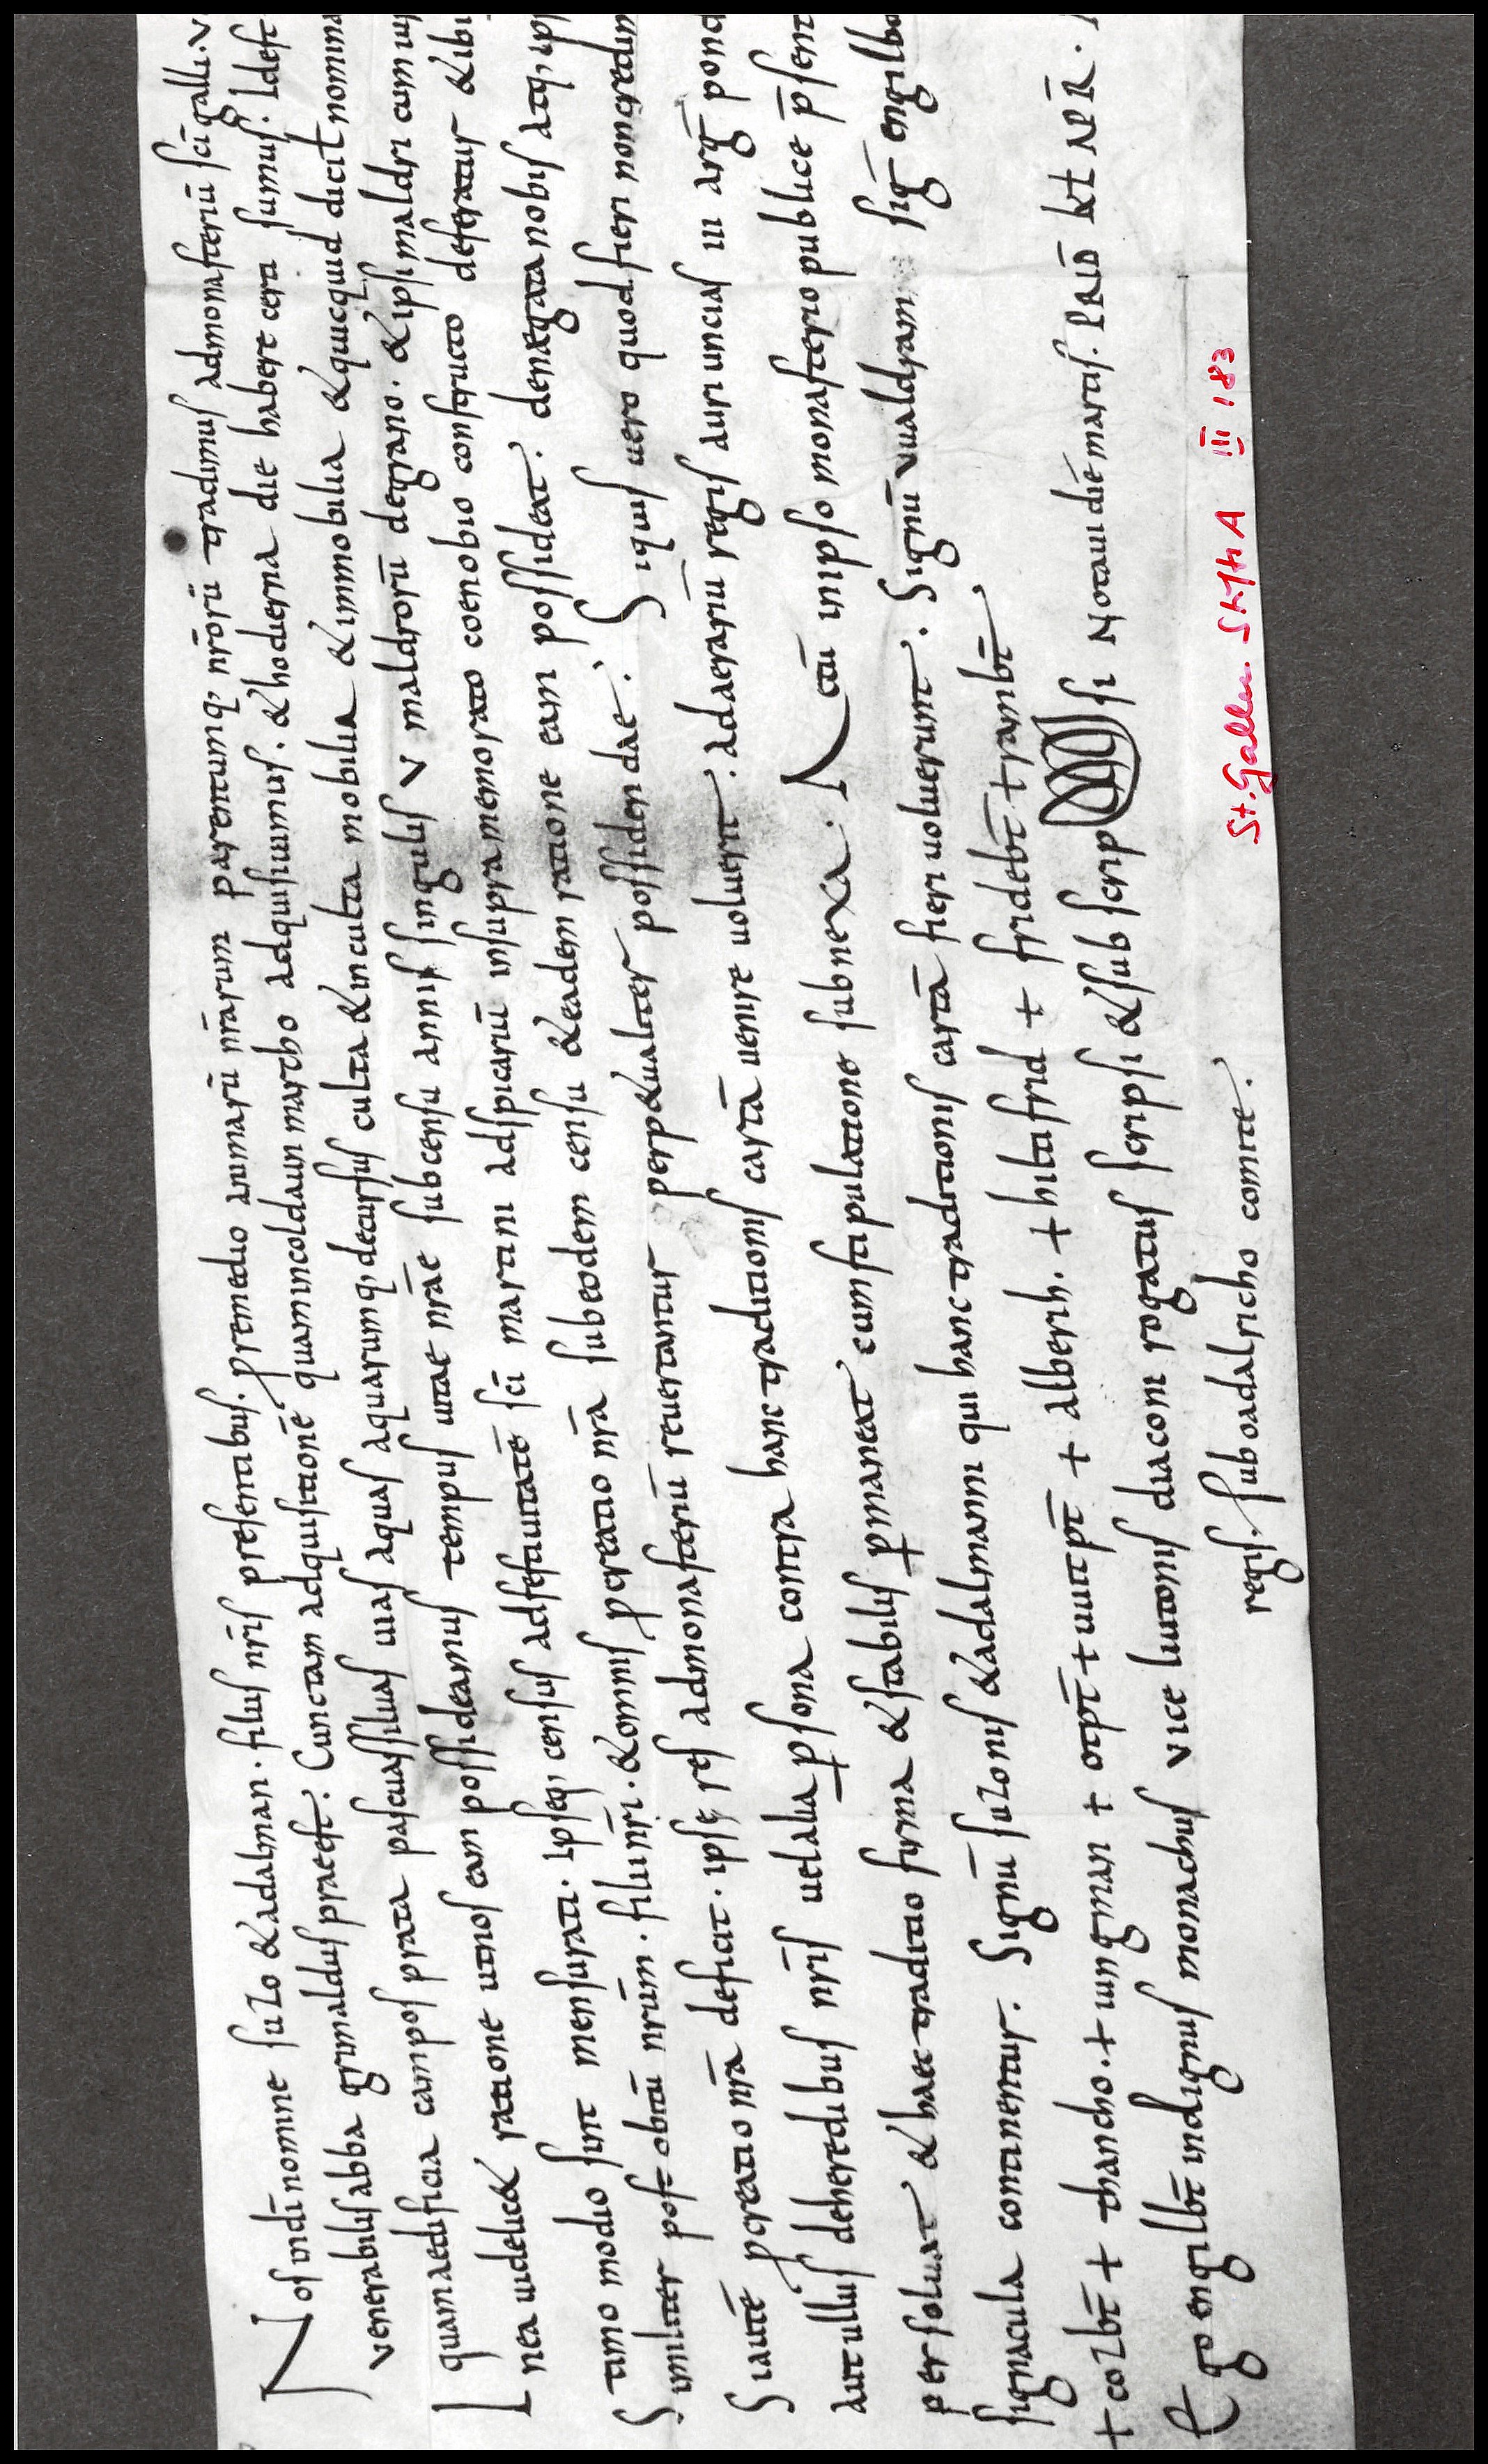 Nos indi̅ nomine suzo & adalman. filiis nr̅is presentibus. premedio animaru̅ nr̅arum parentumq; nr̅oru̅ tradimus admonasteriu̅ sc̅i galli. v
venerabilis abba grimaldus praeest. Cunctam adquisitione̅ quam incoldaun martho adquisiuimus. & hodierna die habere certa sumus. Idest
quam aedificia campos prata pascuas siluas uias aquas aquarumq; decursus culta & inculta mobilia & immobilia & quicquid dici t nomina
Ea uidelic& ratione ut nos eam possideamus tempus uitae nr̅ae sub censu annis singulis v maldroru̅ degrano. & ipsi maldri cum
nea mensurati. Ipseq; census adfestiuitate̅ sc̅i martini adspicariu̅ insupra memorato coenobio constructo deferatur & ibi
timo modio sint mensurati. filii nr̅i. & omnis p̱creatio nr̅a sub eodem censu & eadem ratione eam possideat. denegata nobis atq; ips
Similiter post obitu̅ nr̅um. ipse res admonasteriu̅ reuertantur perp&ualiter possidendae. Siquis uero quod fieri noncredim
Siaute̅ p̱creatio nr̅a deficit. uel alia p̱sona contra hanc traditionis carta̅ uenire uoluerit. adaerariu̅ regis auri uncias iii arg̅ pond
aut ullus deheredibus nr̅is & stabilis p̱maneat cum stipulatione subnexa. Actu̅ inipso monasterio publice p̅sent
persoluat & haec traditio firma & adalmanni qui hanc traditionis carta̅ fieri uoluerunt. Signu̅ uualdram sig̅ engilbe
signacula continentur. Signu̅ suzonis + alberih. + hiltifrid + fridebt̅ + trambt̅
+ cozbt̅ + thancho. + iungman + otpt̅ + uuitpt̅
Ego engilbt̅ indignus monachus vice liutonis diaconi rogatus scripsi & subscripsi Notaui die̅ martis. PRID̅ kł APR̅.
regis. sub oadalricho comite.
St. Gallen StiftsA III 183